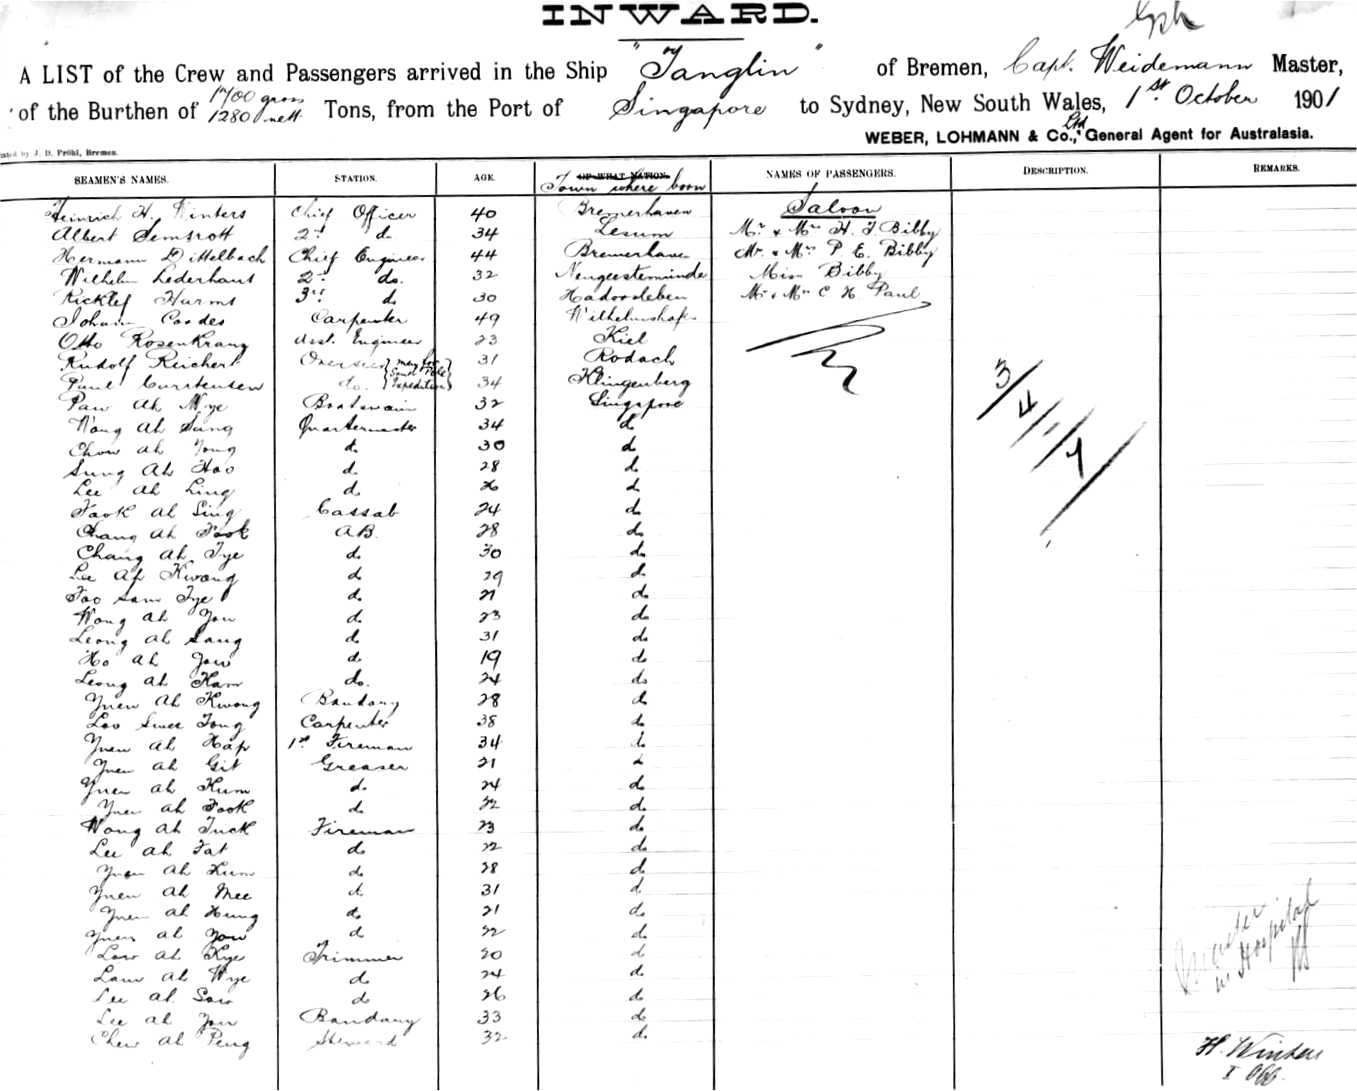 INWARD.
A LIST of the Crew and Passengers arrived in the Ship "Tanglin" of Bremen, Capt. Weidemann Master,
of the Burthen of 1700 gross 1280 nett Tons, from the Port of Singapore to Sydney, New South Wales, 1st October 1901
WEBER, LOHMANN & Co., Ltd General Agent for Australasia.
by J. D. Pröhl, Bremen.
SEAMEN'S NAMES. STATION. AGE. OF WHAT NATION. Town where born NAMES OF PASSENGERS. DESCRIPTION. REMARKS.
Heinrich H. Winters Chief Officer 40 Bremerhaven Saloon
Albert Semsrott 2d do 34 Lesum Mr & Mrs H. J Bibby
Hermann Dittelbach Chief Engineer 44 Bremerhaven Mr & Mrs P. E. Bibby
Wilhelm Lederhaus 2d do. 32 Neugeestemünde Miss Bibby
Ricklef Harms 3rd do 30 Hadersleben Mr & Mrs C H Paul
Johann Cordes Carpenter 49 Wilhelmshaf.
Otto Rosenkranz Asst. Engineer 23 Kiel
Rudolf Reichert Overseer 31 Rodach
Paul Carstensen do. 34 Klingenberg
men for South Pole Expedition
Paw Ah Nye Boatswain 32 Singapore
Wong Ah Sang Quartermaster 34 do
Chow Ah Yong d. 30 d.
Sung Ah Hoo d. 28 d.
Lee Ah Ling d. 26 d
Fook Ah Sing Cassab 24 d.
Chang Ah Fook AB. 28 d.
Chang Ah Tye d. 30 d.
Lee Ah Kwong d 29 d.
Foo Sam Tye d. 21 d.
Wong Ah You d. 23 d.
Leong Ah Sang d. 31 d.
Ho Ah Yow d. 19 d.
Leong Ah Ham do. 24 do
Yuen Ah Kwong Bandary 28 d.
Loo Swee Tong Carpenter 38 d.
Yuen Ah Hap 1st Fireman 34 d.
Yuen Ah Git Greaser 21 d
Yuen Ah Kum d. 24 d.
Yuen Ah Fook d. 22 d.
Wong Ah Tuck Fireman 23 d.
Lee Ah Fat d. 22 d.
Yuen Ah Kum d. 28 d.
Yuen Ah Mee d. 31 d.
Yuen Ah Hung d. 21 d.
Yuen Ah Yow d 22 d.
Low Ah Kye Trimmer 20 d.
Lam Ah Wye d. 24 d.
Lee Ah Sow d 26 d.
Lee Ah You Bandary 33 d.
Chew Ah Peng Steward 32 d.
3/4/1/7
in Hospital
H. Winters
I Off.